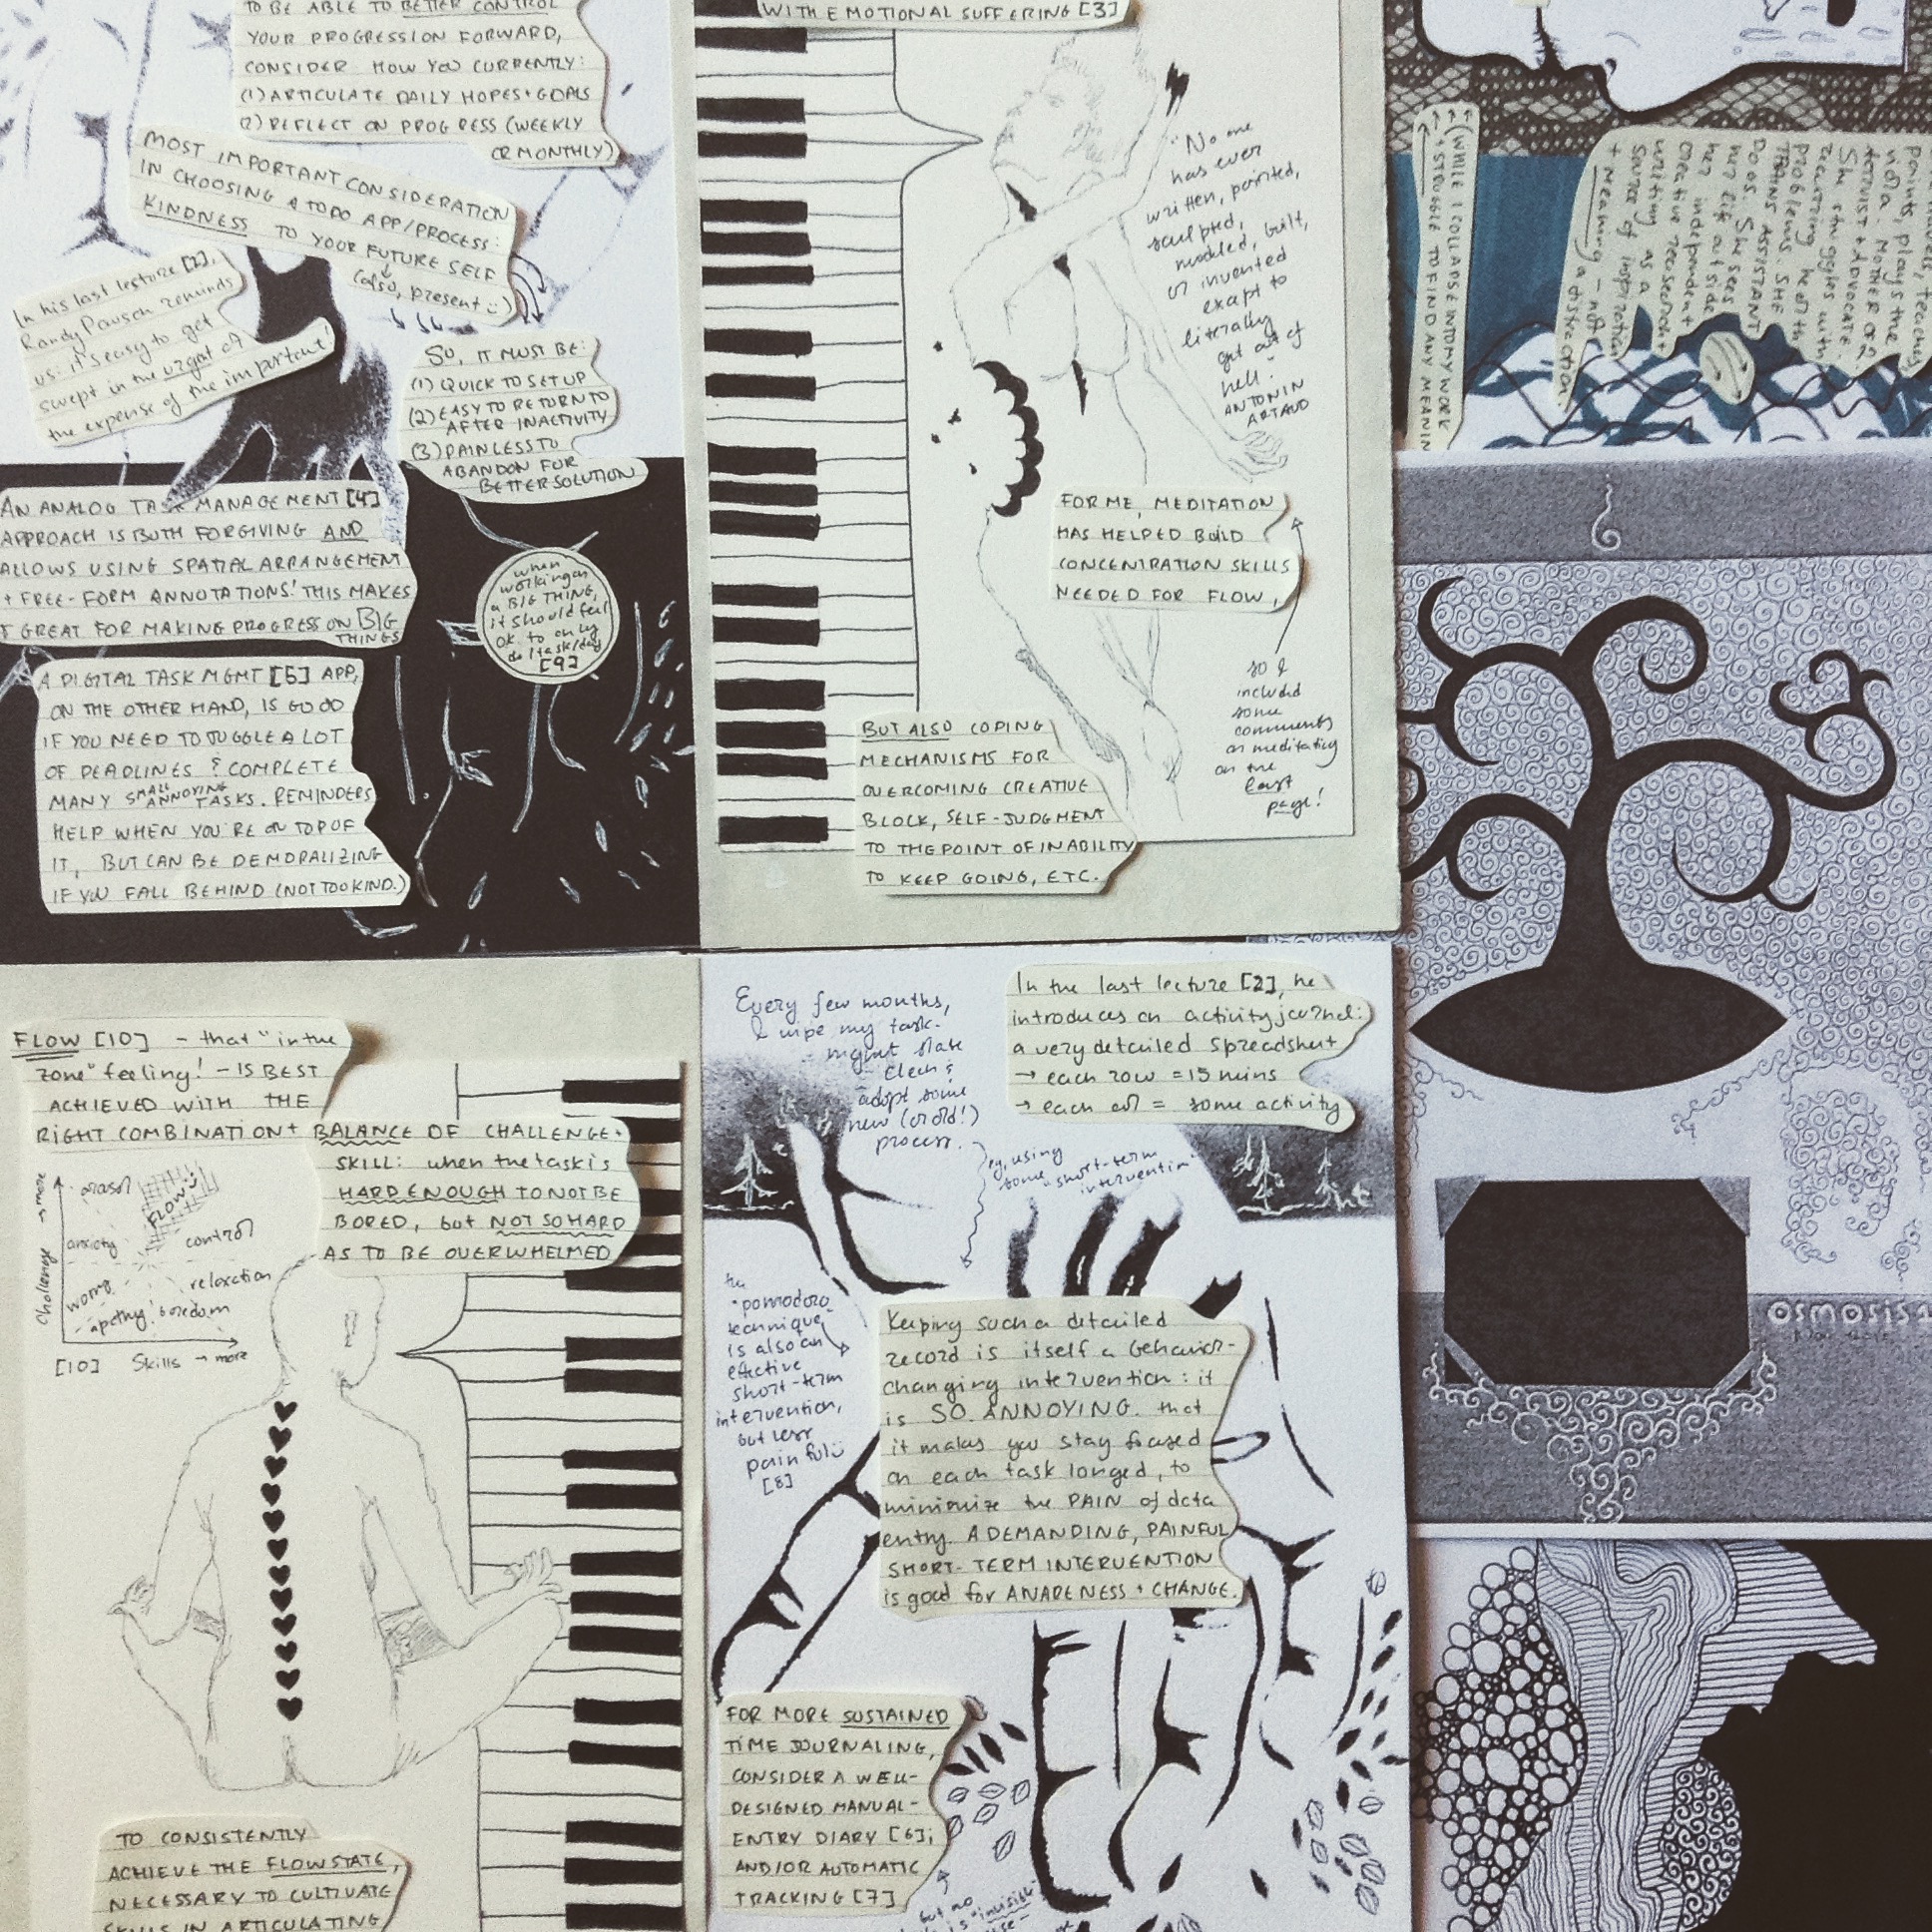 TO BE ABLE TO BETTER CONTROL
YOUR PROGRESSION FORWARD,
CONSIDER HOW YOU CURRENTLY:
(1) ARTICULATE DAILY HOPES + GOALS
(2) REFLECT ON PROGRESS (WEEKLY
OR MONTHLY)
MOST IMPORTANT CONSIDERATION
IN CHOOSING A TODO APP/PROCESS:
KINDNESS TO YOUR FUTURE SELF
(also, present :)
In his last lecture [2],
Randy Pausch reminds
us: it's easy to get
swept in the urgent at
the expense of the important!
SO, IT MUST BE:
(1) QUICK TO SET UP
(2) EASY TO RETURN TO
AFTER INACTIVITY
(3) PAINLESS TO
ABANDON FOR
BETTER SOLUTION
AN ANALOG TASK MANAGEMENT [4]
APPROACH IS BOTH FORGIVING AND
ALLOWS USING SPATIAL ARRANGEMENT
+ FREE-FORM ANNOTATIONS! THIS MAKES
GREAT FOR MAKING PROGRESS ON BIG
THINGS
when
working on
a BIG THING,
it should feel
ok to only
do 1 task/day
[9]
A DIGITAL TASK MGMT [5] APP,
ON THE OTHER HAND, IS GOOD
IF YOU NEED TO JUGGLE A LOT
OF DEADLINES & COMPLETE
MANY SMALL ANNOYING TASKS. REMINDERS
HELP WHEN YOU'RE ON TOP OF
IT, BUT CAN BE DEMORALIZING
IF YOU FALL BEHIND (NOT TOO KIND.)
WITH EMOTIONAL SUFFERING [3]
"No one
has ever
written, painted,
sculpted,
modeled, built,
or invented
except to
literally
get out of
hell."
ANTONIN
ARTAUD
FOR ME, MEDITATION
HAS HELPED BUILD
CONCENTRATION SKILLS
NEEDED FOR FLOW,
so I
included
some
comments
on meditating
on the
last
page!
BUT ALSO COPING
MECHANISMS FOR
OVERCOMING CREATIVE
BLOCK, SELF-JUDGMENT
TO THE POINT OF INABILITY
TO KEEP GOING, ETC.
paints, plays the
viola. MOTHER OF
ACTIVIST + ADVOCATE.
She struggles with
recurring health
problems. SHE
TRAINS ASSISTANT
DOGS. She sees
her life outside
her independent
creative research +
writing as a
source of inspiration
+ meaning - not
a distraction.
(WHILE I COLLAPSE INTO MY WORK
+ STRUGGLE TO FIND ANY MEANIN
FLOW [10] - that "in the
zone" feeling! - IS BEST
ACHIEVED WITH THE
RIGHT COMBINATION + BALANCE OF CHALLENGE +
SKILL: when the task is
HARD ENOUGH TO NOT BE
BORED, but NOT SO HARD
AS TO BE OVERWHELMED
Challenge → more
arousal
FLOW
anxiety
control
worry
relaxation
apathy
boredom
[10] Skills → more
TO CONSISTENTLY
ACHIEVE THE FLOW STATE,
NECESSARY TO CULTIVATE
SKILLS IN ARTICULATING
Every few months,
I wipe my task-
mgmt slate
clean &
adopt some
new (or old!)
process.
eg, using
some short-term
intervention
In the last lecture [2], he
introduces an activity journal:
a very detailed spreadsheet
→ each row = 15 mins
→ each col = some activity
the
"pomodoro"
technique
is also an
effective
short-term
intervention,
but less
painful :)
[8]
Keeping such a detailed
record is itself a behavior-
changing intervention: it
is SO ANNOYING that
it makes you stay focused
on each task longer, to
minimize the PAIN of data
entry. A DEMANDING, PAINFUL
SHORT-TERM INTERVENTION
is good for AWARENESS + CHANGE.
FOR MORE SUSTAINED
TIME JOURNALING,
CONSIDER A WELL-
DESIGNED MANUAL-
ENTRY DIARY [6];
AND/OR AUTOMATIC
TRACKING [7]
but no
is "invisible"
OSMOSIS